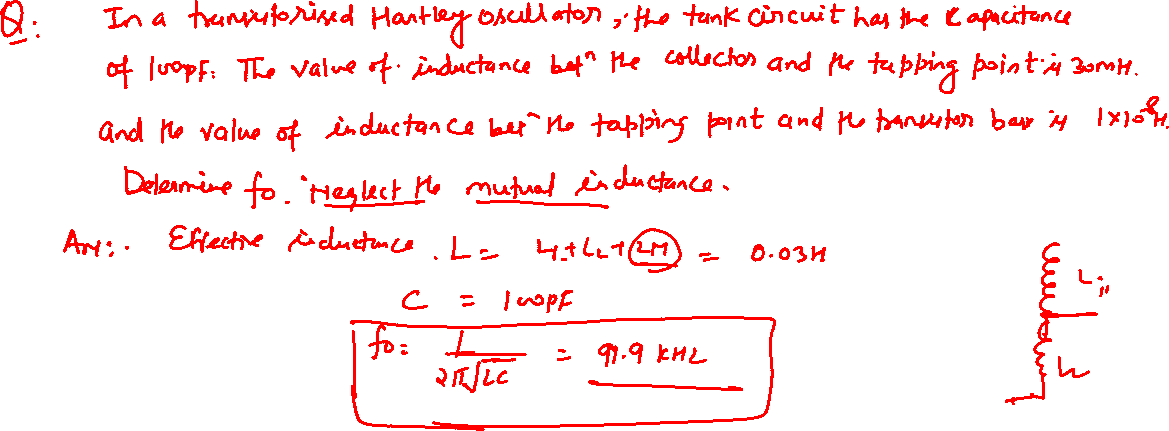 Q: In a transistorised Hartley oscillator, the tank circuit has the Capacitance
of 100pF. The value of inductance betn the collector and the tapping point is 30mH.
and the value of inductance betn the tapping point and the transistor base is 1x10-8H.
Determine fo. Neglect the mutual inductance.
Ans:. Effective inductance. L = L1+L2+2M = 0.03H
C = 100pF
fo = 1/2π√LC = 91.9 KHz
L1